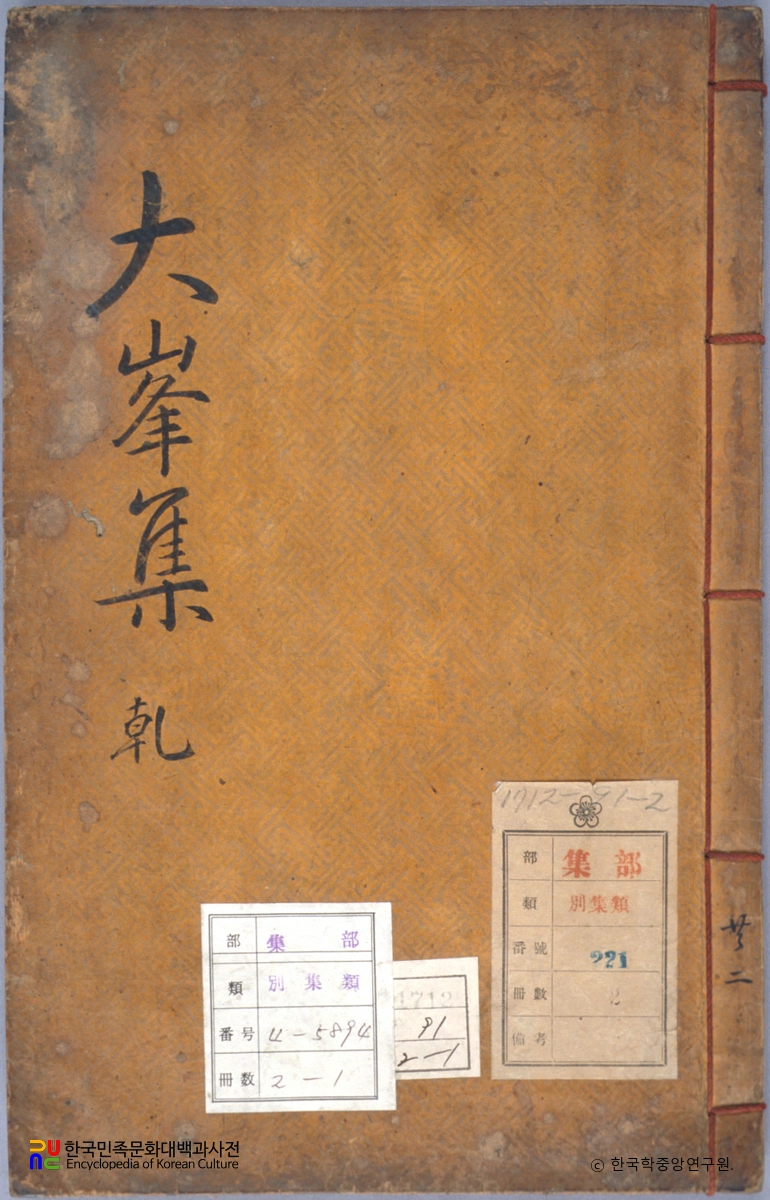 大峯集 乾
共二
1712-91-2
部 集部
類 別集類
番號 221
冊數 2
備考
部 集部
類 別集類
番号 4-5894
冊数 2-1
1712
91
2-1
한국민족문화대백과사전
Encyclopedia of Korean Culture
© 한국학중앙연구원.